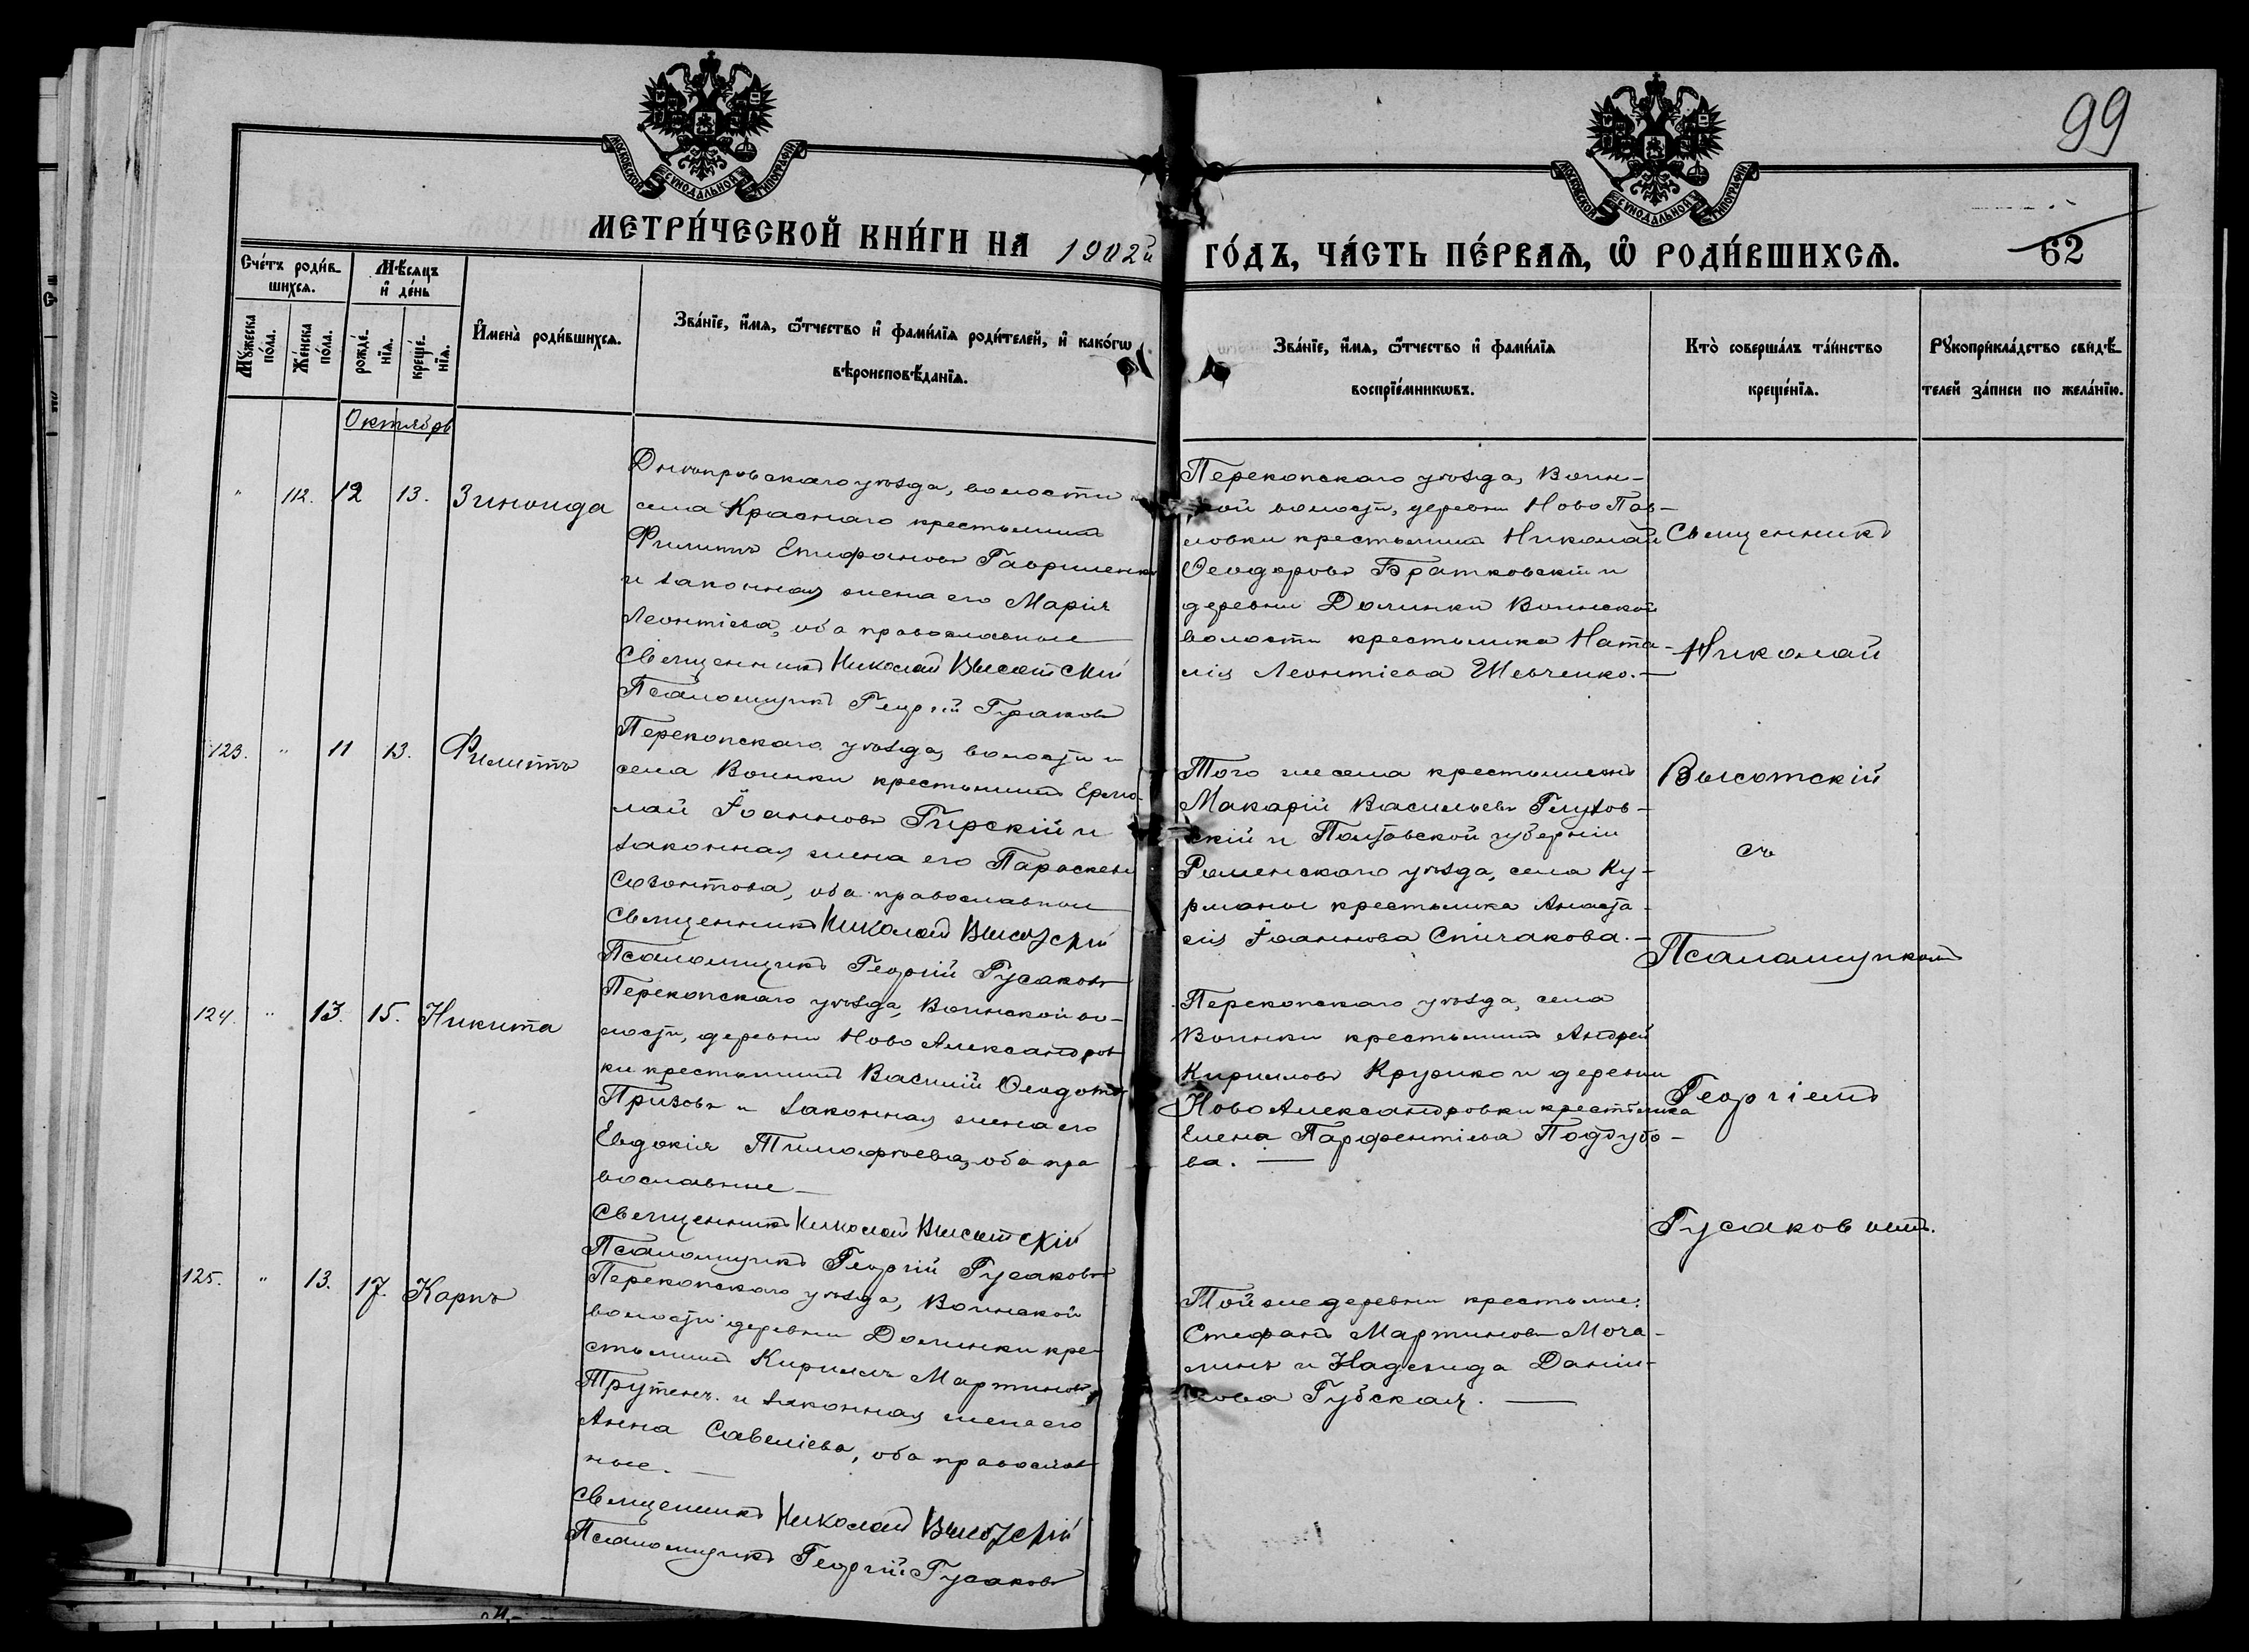 МОСКОВСКОЙ СУНОДАЛЬНОЙ ТИПОГРАФІИ
МОСКОВСКОЙ СУНОДАЛЬНОЙ ТИПОГРАФІИ
99
МЕТРИ́ЧЕСКОЙ КНИ́ГИ НА 1902й ГО́ДЪ, ЧА́СТЬ ПЕ́РВАѦ, Ѡ РОДИ́ВШИХСѦ.
62
Сче́тъ роди́в-
шихсѧ.
Мѣ́сѧцъ
и҆ де́нь
Мꙋ́жеска
по́ла.
Же́нска
по́ла.
рожде́-
нїѧ.
креще́-
нїѧ.
И҆мена̀ роди́вшихсѧ.
Зва́нїе, и҆́мѧ, ѻ҆́тчество и҆ фами́лїѧ роди́телей, и҆ како́гѡ
вѣроисповѣ́данїѧ.
Зва́нїе, и҆́мѧ, ѻ҆́тчество и҆ фами́лїѧ
воспрїе́мникѡвъ.
Кто̀ соверша́лъ та́инство
креще́нїѧ.
Рꙋкоприкла́дство свидѣ́-
телей за́писи по жела́нїю.
Октябрь
" 112. 12 13. Зиноида
Днѣпровскаго уѣзда, волости и
села Краснаго крестьянинъ
Филиппъ Епифановъ Гавриленко
и законная жена его Марія
Леонтіева, оба православные
Священникъ Николай Высотскій
Псаломщикъ Георгій Гусаковъ
Перекопскаго уѣзда, Воин-
ской волости, деревни Ново Пав-
ловки крестьянинъ Николай
Ѳеодоровъ Братковскій и
деревни Долинки Воинской
волости крестьянка Ната-
лія Леонтіева Шевченко.—
123. " 11 13. Филиппъ
Перекопскаго уѣзда, волости и
села Воинки крестьянинъ Ермо-
лай Іоанновъ Гирскій и
законная жена его Параскева
Созонтова, оба православные
Священникъ Николай Высотскій
Псаломщикъ Георгій Гусаковъ
Того же села крестьянинъ
Макарій Васильевъ Глухов-
скій и Полтавской губерніи
Роменскаго уѣзда, села Ку-
рманы крестьянка Анаста-
сія Іоаннова Спичакова.—
124. " 13. 15. Никита
Перекопскаго уѣзда, Воинской во-
лости, деревни Ново Александров-
ки крестьянинъ Василій Ѳеодотовъ
Призовъ и законная жена его
Евдокія Тимофѣева, оба пра
вославные—
Священникъ Николай Высотскій
Псаломщикъ Георгій Гусаковъ
Перекопскаго уѣзда, села
Воинки крестьянинъ Андрей
Кирилловъ и деревни
Ново Александровки крестьянка
Елена Парфентіева Поддубо-
ва.—
125. " 13. 17. Карпъ
Перекопскаго уѣзда, Воинской
волости деревни Долинки кре-
стьянинъ Кириллъ Мартиновъ
и законная жена его
Анна Савеліева, оба православ-
ные.—
Священникъ Николай Высотскій
Псаломщикъ Георгій Гусаковъ
Той же деревни крестьяне:
Стефанъ Мартиновъ Моча-
линъ и Надежда Даніи-
лова Губская.—
Священникъ
Николай
Высотскій
съ
Псаломщикомъ
Георгіемъ
Гусаковымъ.